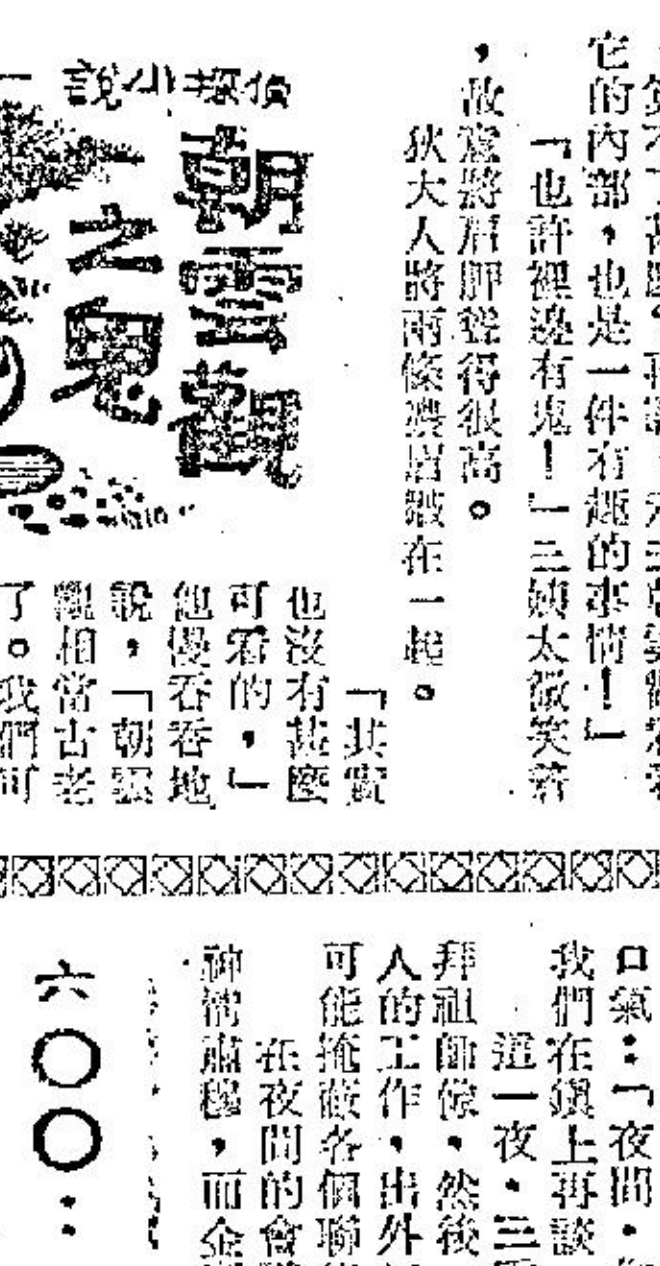 它的內部，也是一件有趣的事情！」
「也許裡邊有鬼！」三姨太微笑著
，故意將眉胛聳得很高。
狄大人將兩條濃眉皺在一起。
偵探小說
朝雲觀
之鬼
「其實
也沒有甚麼
可看的，」
他慢吞吞地
說，「朝雲
觀相當古老
了。我們可
口氣：「夜間，
我們在鎮上再談
這一夜，三
拜祖師像，然後
人的工作，出外
可能掩蔽各個聯
在夜間的會
神情肅穆，而全
六〇〇：